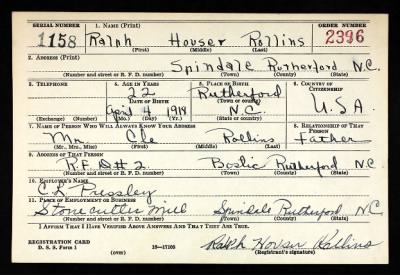 SERIAL NUMBER 1. NAME (Print) ORDER NUMBER
1158 Ralph Houser Rollins 2396
(First) (Middle) (Last)
2. ADDRESS (Print)
Spindale Rutherford N.C.
(Number and street or R. F. D. number) (Town) (County) (State)
3. TELEPHONE 4. AGE IN YEARS 5. PLACE OF BIRTH 6. COUNTRY OF CITIZENSHIP
22 Rutherford
DATE OF BIRTH (Town or county)
April 4 1918 N.C. U.S.A
(Exchange) (Number) (Mo.) (Day) (Yr.) (State or country)
7. NAME OF PERSON WHO WILL ALWAYS KNOW YOUR ADDRESS 8. RELATIONSHIP OF THAT PERSON
Mr. Rollins Father
(Mr., Mrs., Miss) (First) (Middle) (Last)
9. ADDRESS OF THAT PERSON
R.F.D #2. Bostic Rutherford N.C
(Number and street or R. F. D. number) (Town) (County) (State)
10. EMPLOYER'S NAME
C.L. Pressley
11. PLACE OF EMPLOYMENT OR BUSINESS
Stonecutter Mill Spindale Rutherford N.C
(Number and street or R. F. D. number) (Town) (County) (State)
I AFFIRM THAT I HAVE VERIFIED ABOVE ANSWERS AND THAT THEY ARE TRUE.
REGISTRATION CARD
D. S. S. Form 1 (over) 16—17105 Ralph Houser Rollins
(Registrant's signature)